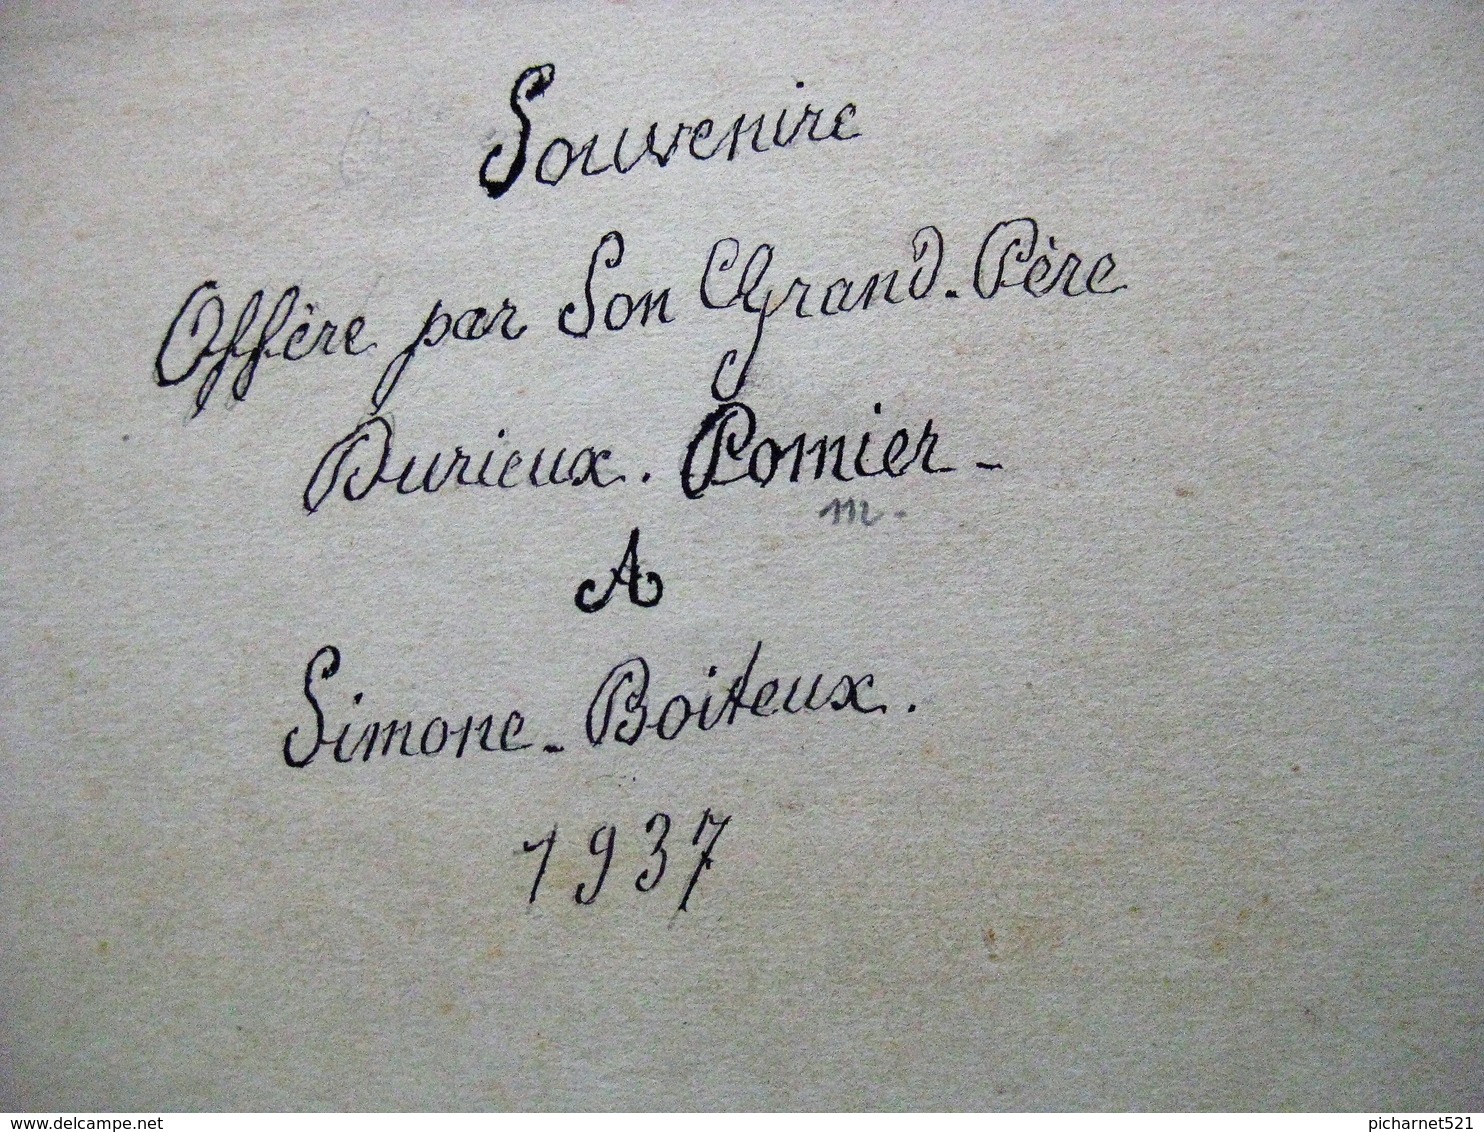 Souvenire
Offère par Son Grand-Père
Durieux. Pomier-
m.
A
Simone-Boiteux.
1937
www.delcampe.net
picharnet521